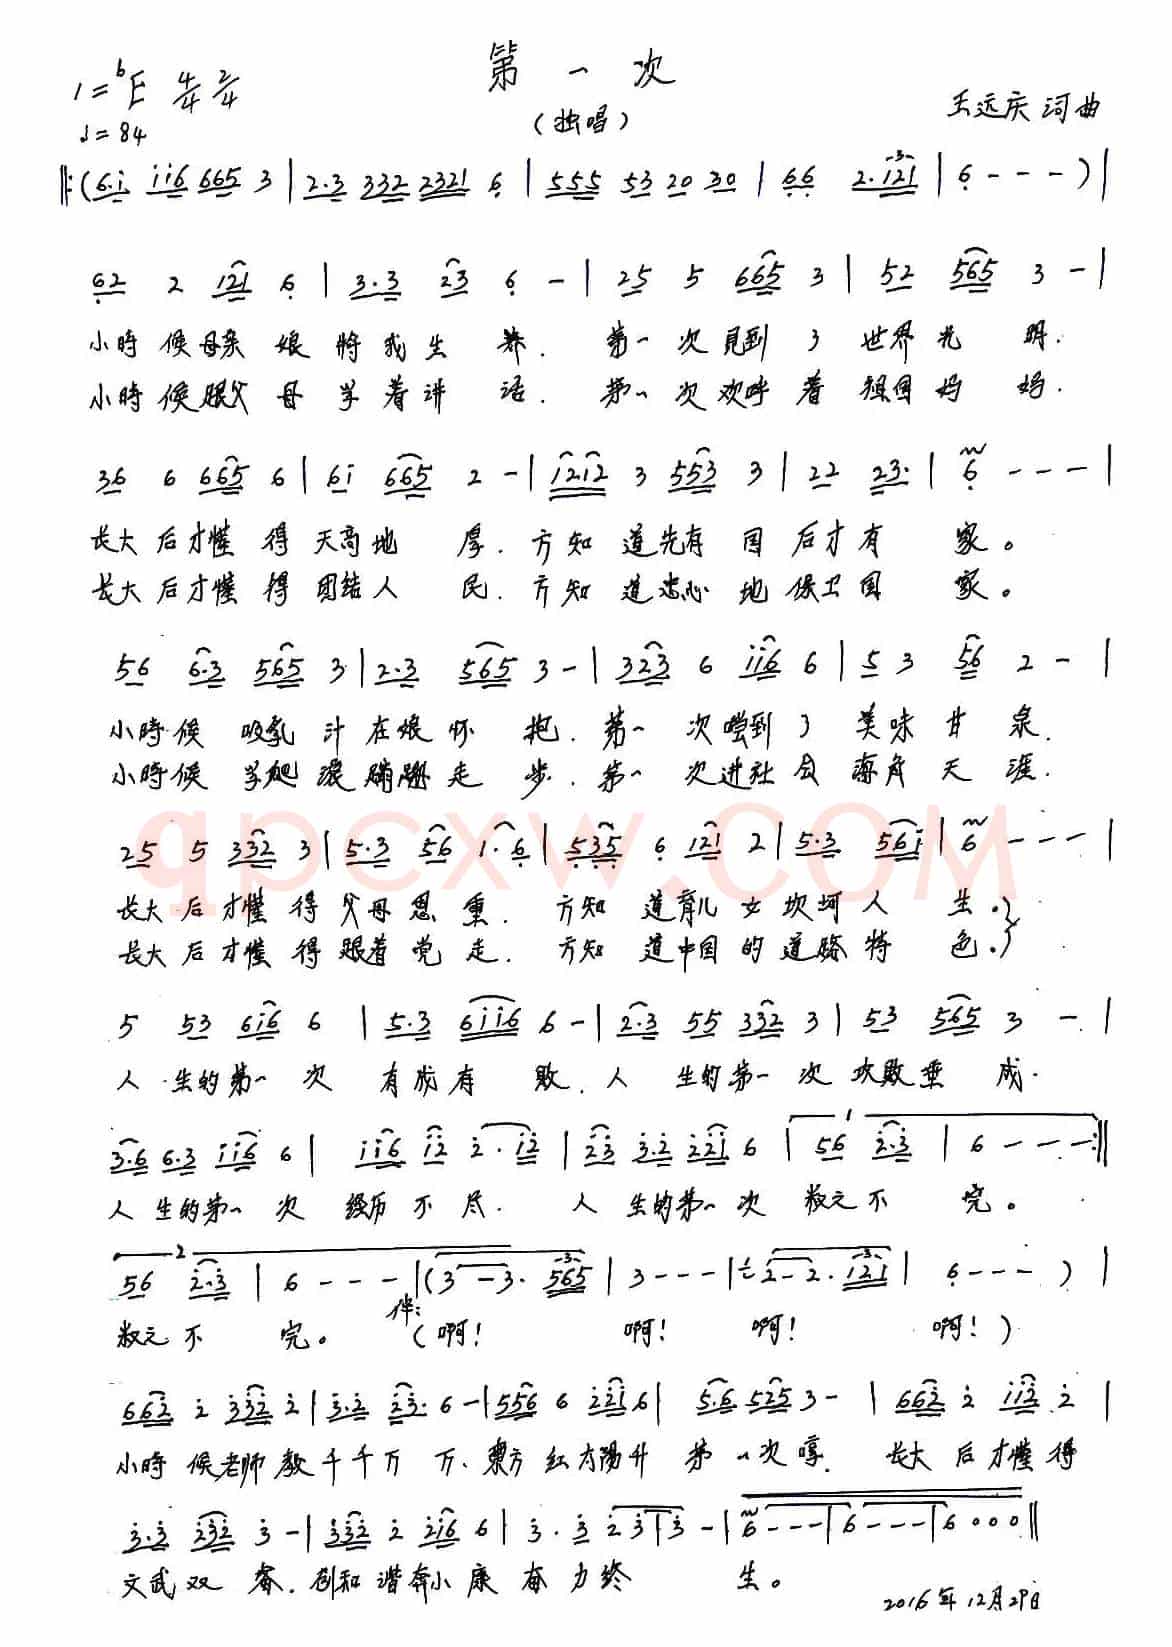 第一次
1=ᵇE 4/4 2/4
(独唱)
王远庆 词曲
♩=84
‖:(6·i ii6 665 3 | 2·3 332 2321 6 | 555 53 20 30 | 66 2·121 | 6 - - - ) |
62 2 121 6 | 3·3 23 6 - | 25 5 665 3 | 52 565 3 - |
小時候母亲娘将我生养.第一次見到了世界光明.
小時候跟父母学着讲话.第一次欢呼着祖国妈妈.
36 6 665 6 | 6i 665 2 - | 1212 3 553 3 | 22 23· | 6 - - - |
长大后才懂得天高地厚.方知道先有国后才有家。
长大后才懂得团结人民.方知道忠心地保卫国家。
56 6·3 565 3 | 2·3 565 3 - | 323 6 ii6 6 | 5 3 56 2 - |
小時候吸乳汁在娘怀抱.第一次嚐到了美味甘泉.
小時候学爬滚蹒跚走步.第一次进社会海角天涯.
qpcxw.COM
25 5 332 3 | 5·3 56 1·6 | 535 6 121 2 | 5·3 56i | 6 - - - |
长大后才懂得父母恩重.方知道育儿女坎坷人生.
长大后才懂得跟着党走.方知道中国的道路特色.
5 53 6i6 6 | 5·3 6ii6 6 - | 2·3 55 332 3 | 53 565 3 - |
人生的第一次有成有败.人生的第一次坎败垂成.
3·6 6·3 ii6 6 | ii6 i2 2·i2 | 23 3·2 22i 6 | 1 56 2·3 | 6 - - - :‖
人生的第一次经历不尽.人生的第一次数之不完。
2 56 2·3 | 6 - - - | (3 - 3· 565 | 3 - - - | 2 - 2· 121 | 6 - - - ) |
数之不完。伴:(啊!啊!啊!啊!)
662 2 332 2 | 3·2 23· 6 - | 556 6 22i 6 | 5·6 525 3 - | 662 2 ii2 2 |
小時候老师教千千万万、東方红太陽升第一次哼.长大后才懂得
3·3 232 3 - | 332 2 2i6 6 | 3·3 2 3 3 - | 6 - - - | 6 - - - | 6 0 0 0 ‖
文武双奋.创和谐奔小康奋力终生。
2016年12月29日